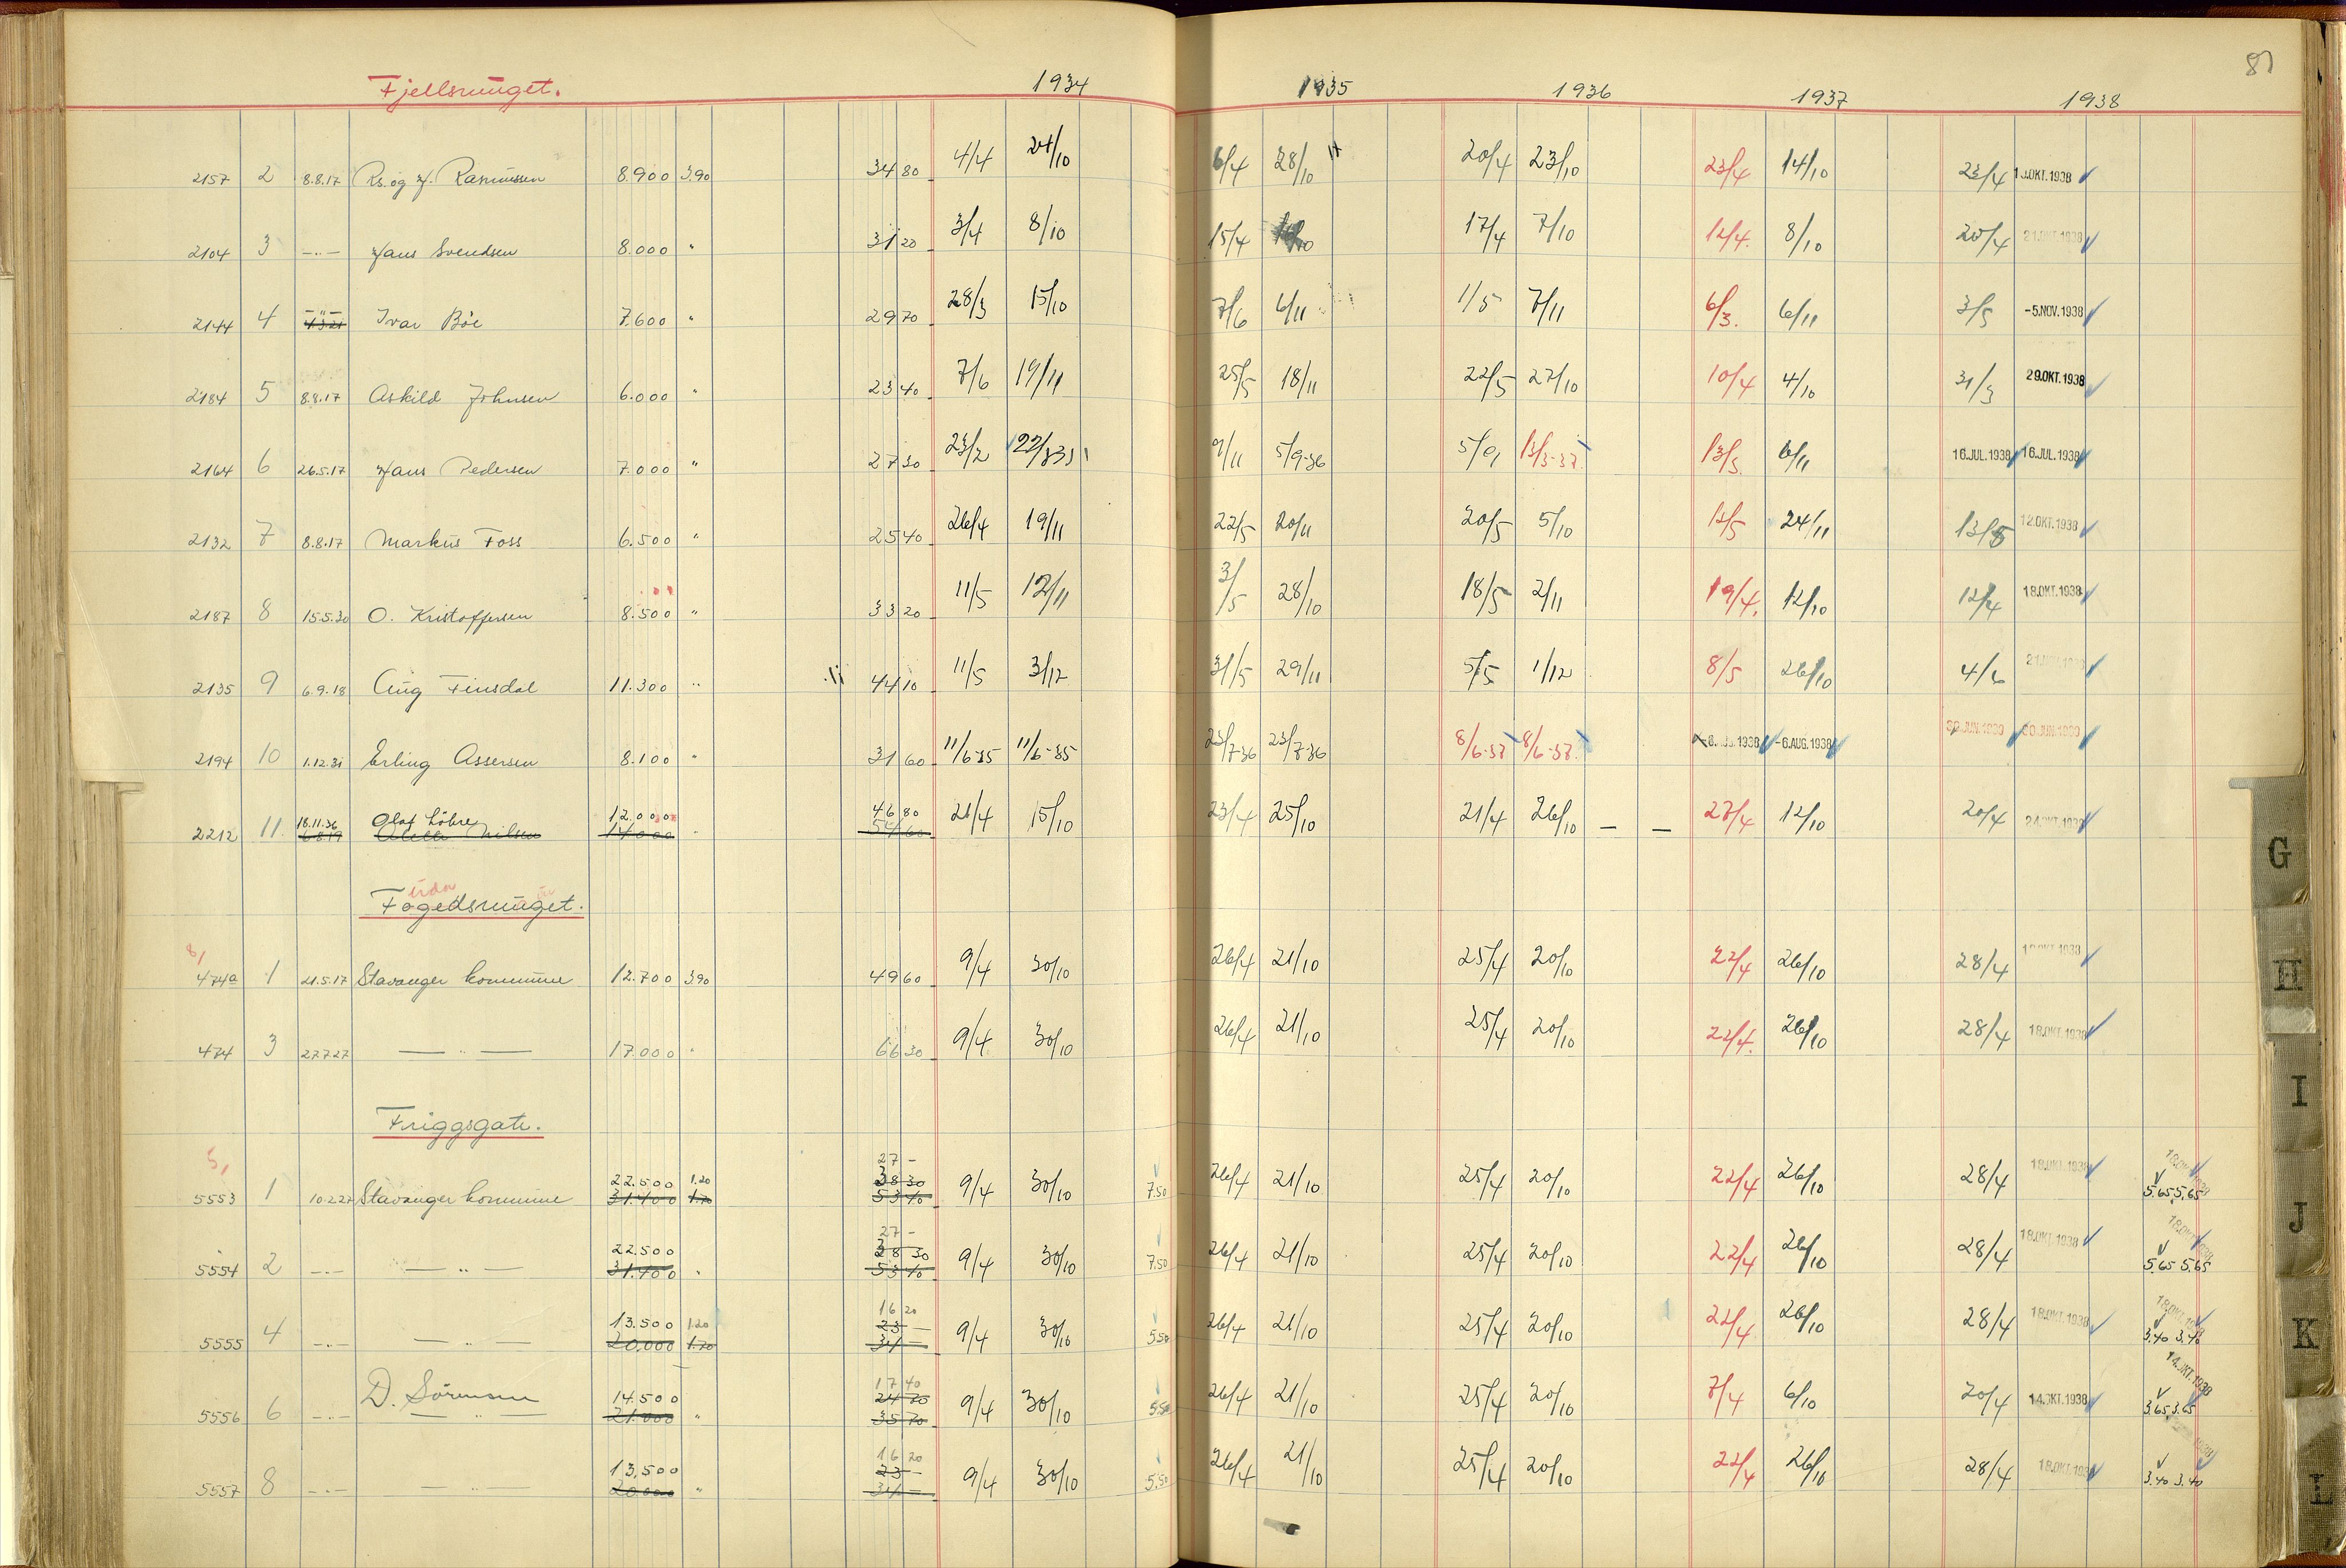 Fjellsmuget. 1934 1935 1936 1937 1938
2157 2 8.8.17 Rs. og H. Rasmussen 8.900 3.90 34 80 4/4 24/10 6/4 28/10 20/4 23/10 23/4 14/10 23/4 OKT.1938
2104 3 —"— Hans Svendsen 8.000 " 31 20 3/4 8/10 15/4 17/4 7/10 12/4. 8/10 20/4 21.OKT.1938
2144 4 —"— Ivar Böe 7.600 " 29 70 28/3 15/10 7/6 6/11 1/5 7/11 6/3. 6/11 3/5 -5.NOV.1938
2184 5 8.8.17 Askild Johnsen 6.000 " 23 40 7/6 19/11 25/5 18/11 22/5 27/10 10/4 4/10 31/3 29.OKT.1938
2164 6 26.5.17 Hans Pedersen 7.000 " 27 30 23/2 9/11 5/9-36 5/9 13/3-37. 13/3. 6/11 16.JUL.1938 16.JUL.1938
2132 7 8.8.17 Markus Foss 6.500 " 25 40 26/4 19/11 22/5 20/11 20/5 5/10 12/5 24/11 13/5 12.OKT.1938
2187 8 15.5.30 O. Kristoffersen 8.500 " 33 20 11/5 12/11 3/5 28/10 18/5 2/11 19/4. 12/10 12/4 18.OKT.1938
2135 9 6.9.18 Aug Finsdal 11.300 " 44 10 11/5 3/12 31/5 29/11 5/5 1/12 8/5 26/10 4/6
2194 10 1.12.31 Erling Assersen 8.100 " 31 60 11/6-35 11/6-35 23/7-36 23/7-36 8/6-37 8/6-37. -6.AUG.1938 -6.AUG.1938 30.JUN.1939 30.JUN.1939
18.11.36 Olaf Löbre 12.000 46 80
2212 11. 6.8.19 Nilsen 14.000 " 54 60 21/4 15/10 23/4 25/10 21/4 26/10 — — 27/4 12/10 20/4 24.OKT.1938
Fogedsmuget.
8/
474a 1 21.5.17 Stavanger kommune 12.700 3.90 49 60 9/4 30/10 26/4 21/10 25/4 20/10 22/4 26/10 28/4 OKT.1938
474 3 27.7.27 —"— 17.000 " 66 30 9/4 30/10 26/4 21/10 25/4 20/10 22/4. 26/10 28/4 18.OKT.1938
Friggsgate.
5/
27 –
22.500 1.20 38 30
5553 1 10.2.27 Stavanger kommune 31.400 1.70 53 40 9/4 30/10 7.50 26/4 21/10 25/4 20/10 22/4 26/10 28/4 18.OKT.1938 5.65 5.65
27 –
22.500 38 30
5554 2 —"— —"— 31.400 " 53 40 9/4 30/10 7.50 26/4 21/10 25/4 20/10 22/4 26/10 28/4 18.OKT.1938 5.65 5.65
16 20
13.500 1.20 23 —
5555 4 —"— —"— 20.000 1.70 34 — 9/4 30/10 5.50 26/4 21/10 25/4 20/10 22/4 26/10 28/4 18.OKT.1938 3.40 3.40
17 40
D. Sörensen 14.500 24 70
5556 6 —"— —"— 21.000 " 35 70 9/4 30/10 5.50 26/4 21/10 25/4 20/10 7/4 6/10 20/4 14.OKT.1938 14.OKT.1938 3.65 3.65
16 20
13.500 23 –
5557 8 —"— —"— 20.000 " 34 — 9/4 30/10 5.50 26/4 21/10 25/4 20/10 22/4 26/10 28/4 18.OKT.1938 3.40 3.40
G
H
I
J
K
L